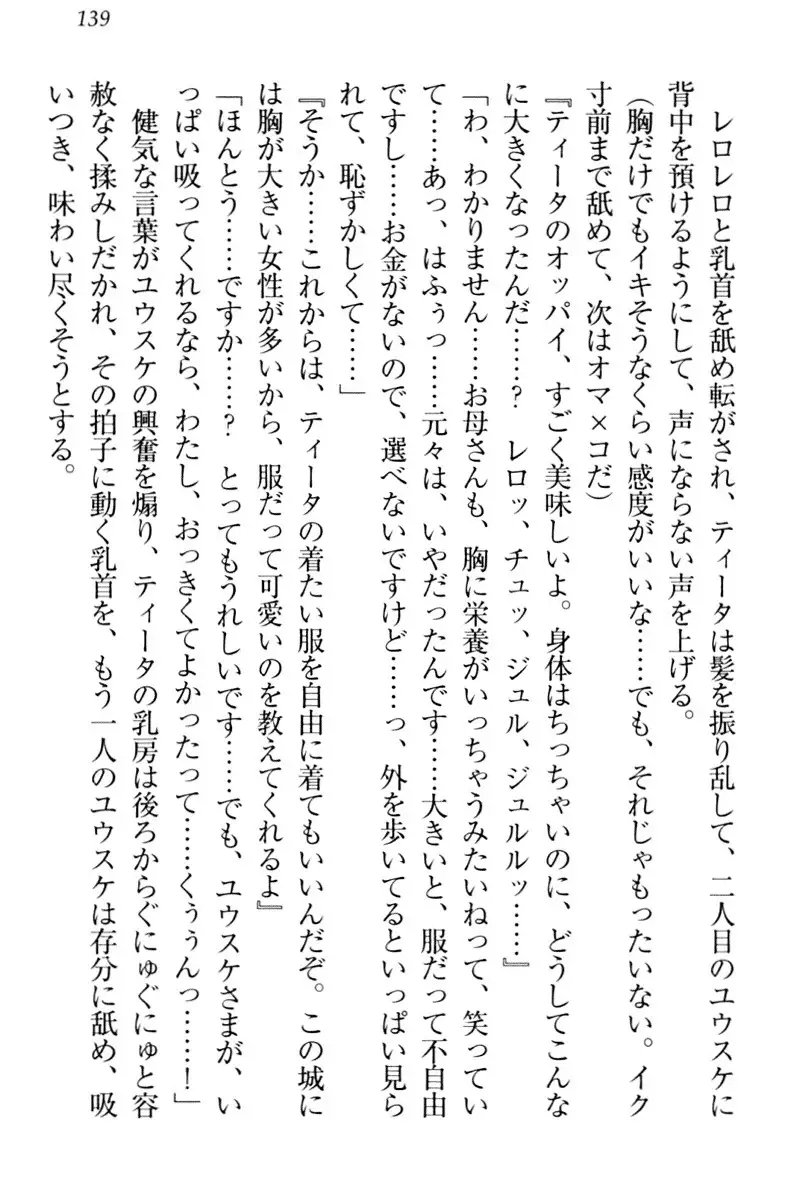 139
レロレロと乳首を舐め転がされ、ティータは髪を振り乱して、二人目のユウスケに
背中を預けるようにして、声にならない声を上げる。
（胸だけでもイキそうなくらい感度がいいな……でも、それじゃもったいない。イク
寸前まで舐めて、次はオマ×コだ）
『ティータのオッパイ、すごく美味しいよ。身体はちっちゃいのに、どうしてこんな
に大きくなったんだ……？　レロッ、チュッ、ジュル、ジュルルッ……』
「わ、わかりません……お母さんも、胸に栄養がいっちゃうみたいねって、笑ってい
て……あっ、はふぅっ……元々は、いやだったんです……大きいと、服だって不自由
ですし……お金がないので、選べないですけど……っ、外を歩いてるといっぱい見ら
れて、恥ずかしくて……」
『そうか……これからは、ティータの着たい服を自由に着てもいいんだぞ。この城に
は胸が大きい女性が多いから、服だって可愛いのを教えてくれるよ』
「ほんとう……ですか……？　とってもうれしいです……でも、ユウスケさまが、い
っぱい吸ってくれるなら、わたし、おっきくてよかったって……くぅぅんっ……！」
健気な言葉がユウスケの興奮を煽り、ティータの乳房は後ろからぐにゅぐにゅと容
赦なく揉みしだかれ、その拍子に動く乳首を、もう一人のユウスケは存分に舐め、吸
いつき、味わい尽くそうとする。